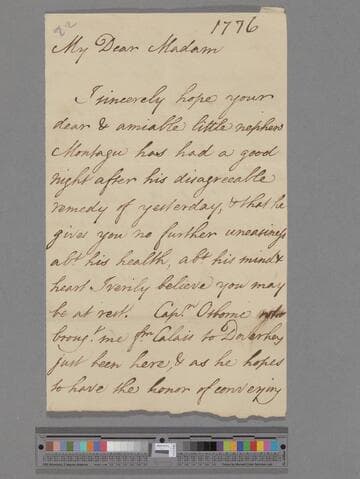 22
1776
My Dear Madam
I sincerely hope your
dear & amiable little nephew
Montagu has had a good
night after his disagreeable
remedy of yesterday, & that he
gives you no further uneasiness
abt his health, abt his mind &
heart I verily believe you may
be at rest. Capn Osborne
brougt me fm Calais to Dover has
just been here, & as he hopes
to have the honor of conveying